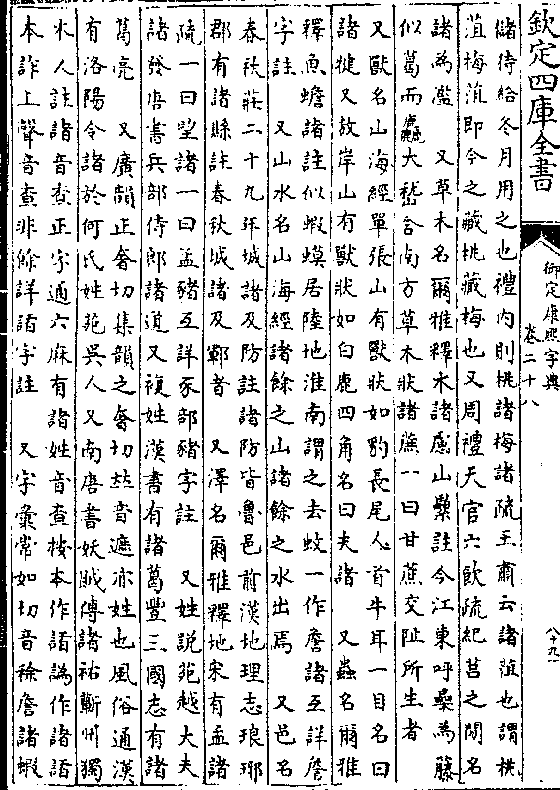 欽定四庫全書
御定康熙字典
卷二十八
八十九
儲偫給冬月用之也禮內則桃諸梅諸疏王肅云諸菹也謂桃
菹梅菹即今之藏桃藏梅也又周禮天官六飲疏紀莒之閒名
諸為濫　又草木名爾雅釋木諸慮山櫐註今江東呼櫐為藤
似葛而麤大嵇含南方草木狀諸蔗一曰甘蔗交阯所生者
又獸名山海經單張山有獸狀如豹長尾人首牛耳一目名曰
諸犍又敖岸山有獸狀如白鹿四角名曰夫諸　又蟲名爾雅
釋魚蟾諸註似蝦蟆居陸地淮南謂之去蚥一作詹諸互詳詹
字註　又山水名山海經諸餘之山諸餘之水出焉　又邑名
春秋莊二十九年城諸及防註諸防皆魯邑前漢地理志琅邪
郡有諸縣註春秋城諸及鄆者　又澤名爾雅釋地宋有孟諸
疏一曰望諸一曰孟豬互詳豕部豬字註　又姓說苑越大夫
諸發唐書兵部侍郎諸道又複姓漢書有諸葛豐三國志有諸
葛亮　又廣韻正奢切集韻之奢切𠀤音遮亦姓也風俗通漢
有洛陽令諸於何氏姓苑吳人又南唐書妖賊傳諸祐蘄州獨
木人註諸音查正字通六麻有諸姓音查按本作䛽譌作諸䛽
本詐上聲音查非餘詳䛽字註　又字彙常如切音徐詹諸蝦